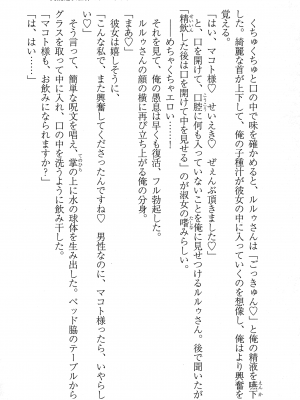 くちゅくちゅと口の中で味を確かめると、ルルゥさんは「ごっきゅん♡」と俺の精液を嚥下
した。綺麗な首が上下して、俺の子種汁が彼女の中に入っていくのを想像し、俺はより興奮を
覚える。
「はい、マコト様♡ せいえき♡ ぜぇんぶ頂きました♡」
と、口を開けて、口腔に何も入っていないことを俺に見せつけるルルゥさん。後で聞いたが
「精飲した後は口を開けて中を見せる」のが淑女の嗜みらしい。
めちゃくちゃエロい……!
それを見て、俺の愚息は早くも復活、フル勃起した。
ルルゥさんの顔の横に再び立ち上がる俺の分身。
「まあ♡」
彼女は嬉しそうに、
「こんな私で、また興奮してくださったんですね♡ 男性なのに、マコト様ったら、いやらし
い♡」
そう言って、簡単な呪文を唱え、掌の上に水の球体を生み出した。ベッド脇のテーブルから
グラスを取って中に入れ、口の中を洗うように飲み干した。
「マコト様も、お飲みになられますか?」
「は、はい……」